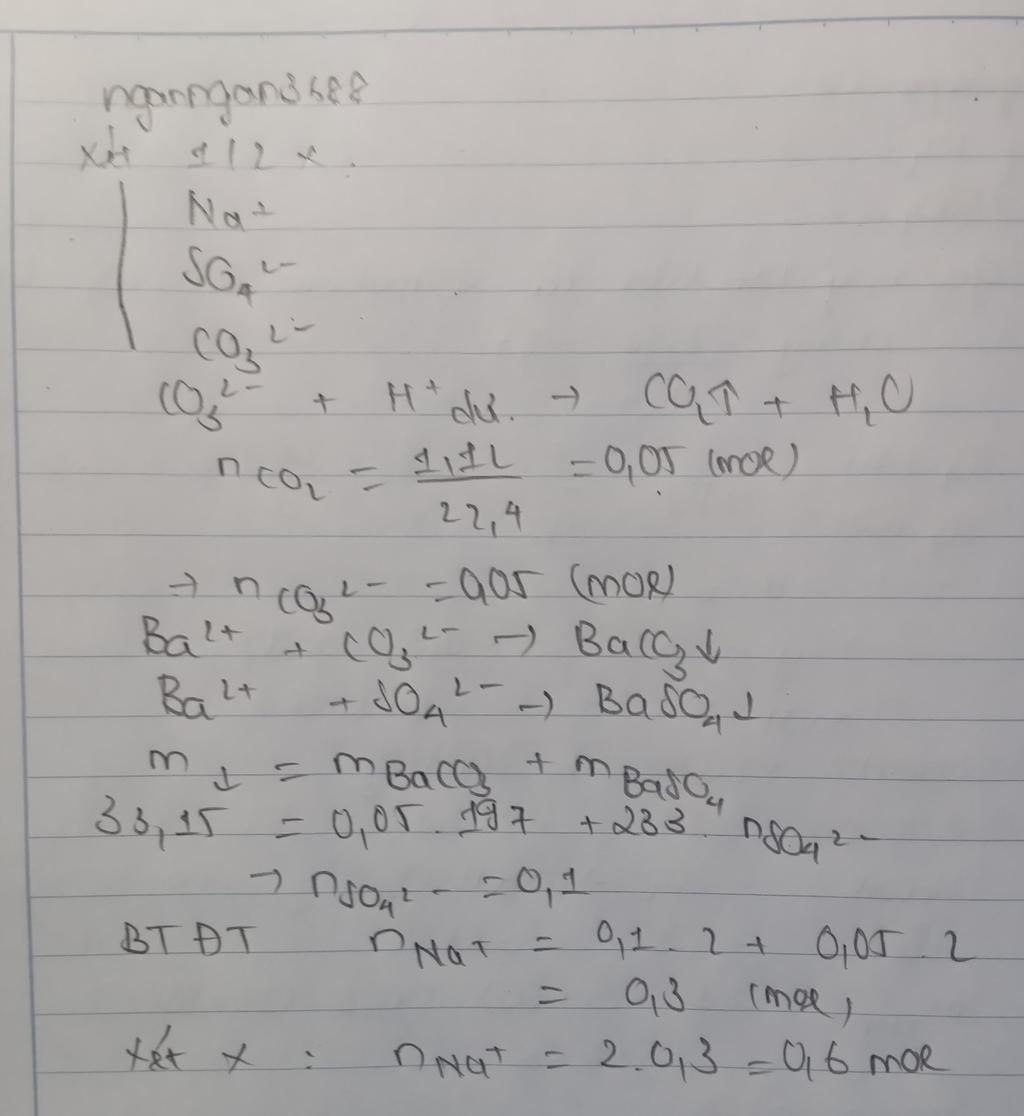 ngannngan3688
xét 1/2 x.
Na⁺
SO₄²⁻
CO₃²⁻
CO₃²⁻ + H⁺ dư. → CO₂↑ + H₂O
nCO₂ = 1,12/22,4 = 0,05 (mol)
→ nCO₃²⁻ = 0,05 (mol)
Ba²⁺ + CO₃²⁻ → BaCO₃↓
Ba²⁺ + SO₄²⁻ → BaSO₄↓
m↓ = mBaCO₃ + mBaSO₄
33,15 = 0,05.197 + 233.nSO₄²⁻
→ nSO₄²⁻ = 0,1
BTĐT nNa⁺ = 0,1.2 + 0,05.2
= 0,3 (mol)
xét x : nNa⁺ = 2.0,3 = 0,6 mol